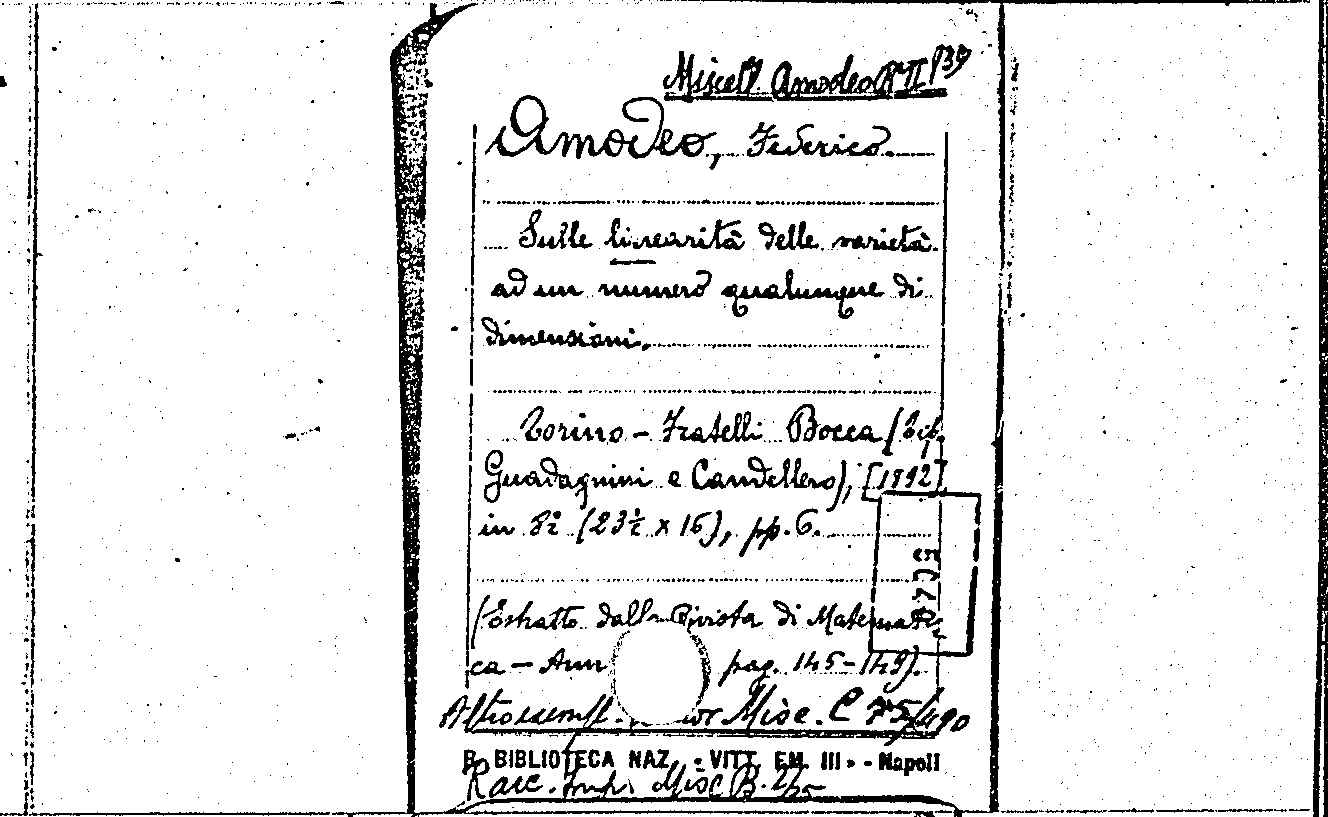 Miscell. Amodeo B VII 139
Amodeo, Federico.
Sulle linearità delle varietà
ad un numero qualunque di
dimensioni.
Torino - Fratelli Bocca (Tip.
Guadagnini e Candellero), [1892]
in 8º (23½ x 16), pp. 6.
(Estratto dalla Rivista di Matemati
ca - Ann pag. 145-149).
Altro esempl. Misc. C 75/490
B. BIBLIOTECA NAZ. « VITT. EM. III » - Napoli
Racc. Misc B.